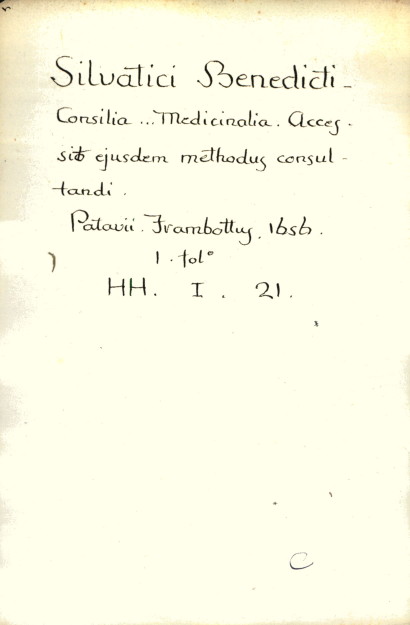 Silvatici Benedicti -
Consilia ... Medicinalia. Acces -
sit ejusdem methodus consul -
tandi.
Patavii. Frambottus. 1656.
1. fol°
HH. I. 21.
C